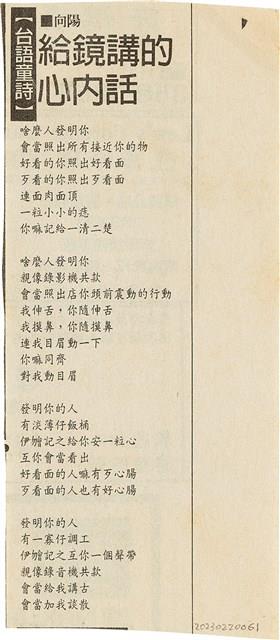 【台語童詩】
■向陽
給鏡講的
心內話
啥麼人發明你
會當照出所有接近你的物
好看的你照出好看面
歹看的你照出歹看面
連面肉面頂
一粒小小的痣
你嘛記給一清二楚
啥麼人發明你
親像錄影機共款
會當照出店你頭前震動的行動
我伸舌,你隨伸舌
我摸鼻,你隨摸鼻
連我目眉動一下
你嘛同齊
對我動目眉
發明你的人
有淡薄仔飯桶
伊𣍐記之給你安一粒心
互你會當看出
好看面的人嘛有歹心腸
歹看面的人也有好心腸
發明你的人
有一寡仔調工
伊𣍐記之互你一個聲帶
親像錄音機共款
會當給我講古
會當加我談散
20230220061